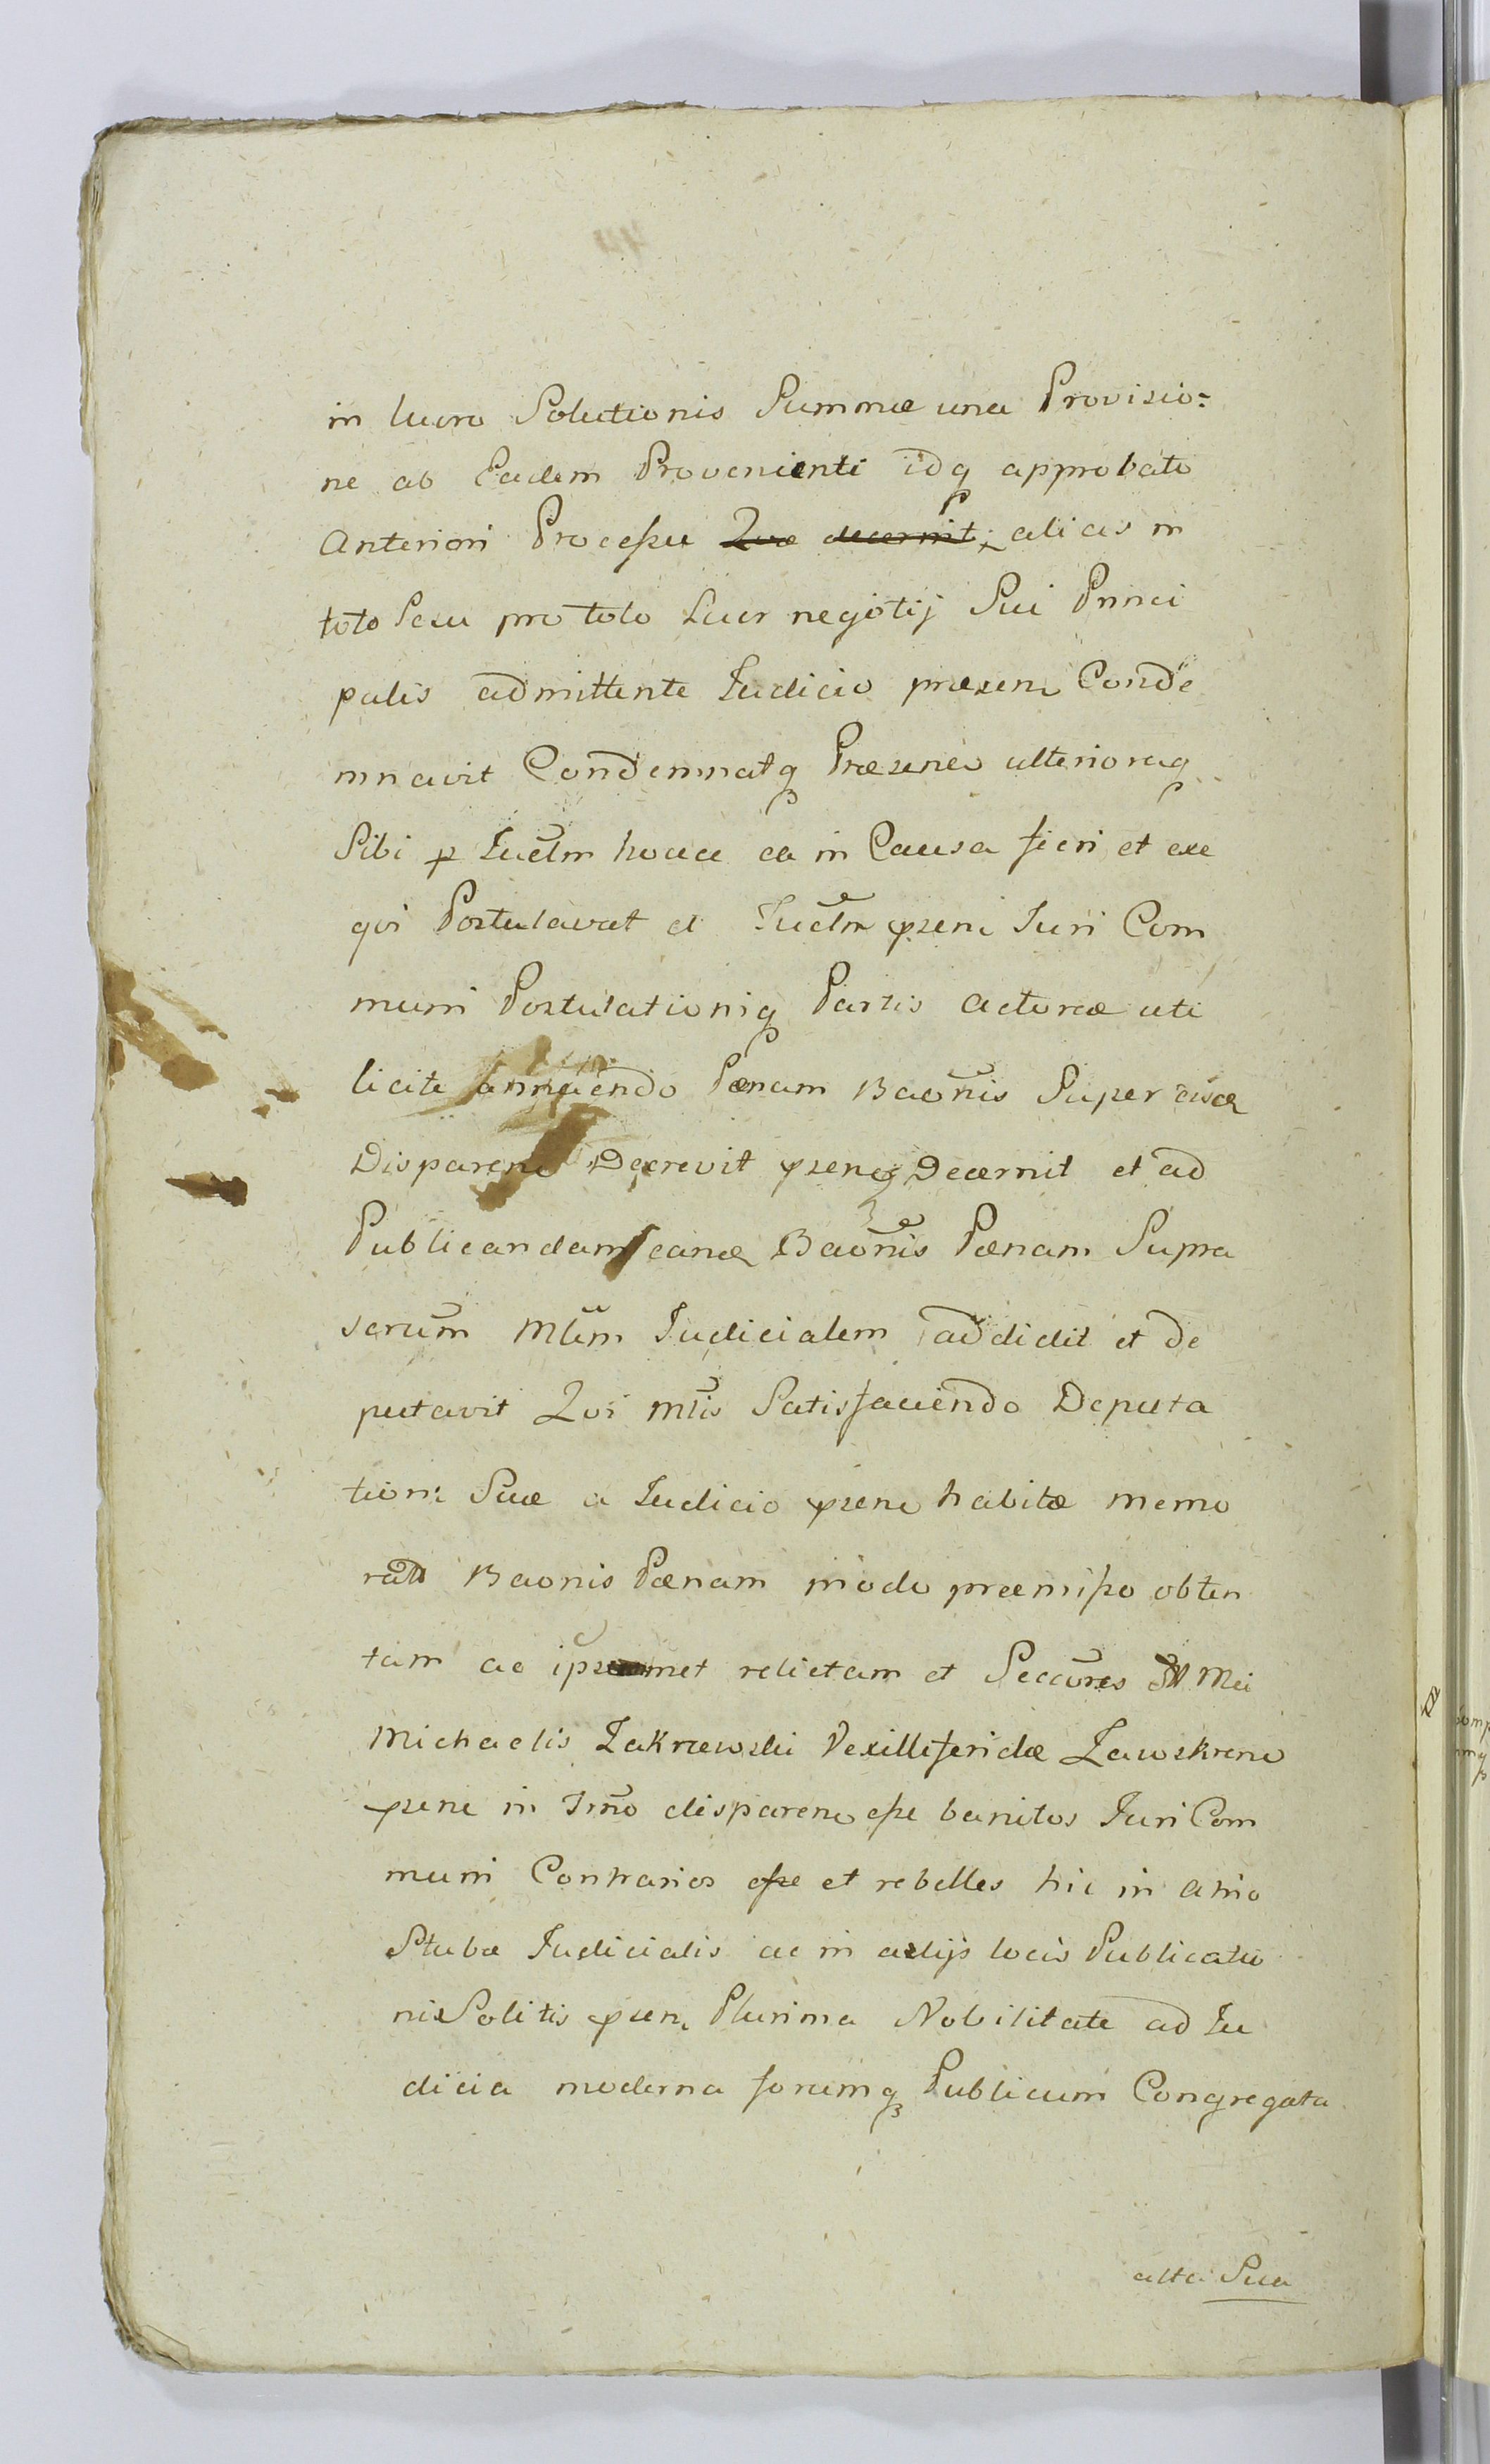 in lucro Solutionis Summæ una Provisio=
ne ab Eadem Provenienti idq approbato
Anteriori Processu Quæ decernit, alias in
toto Seu pro toto Lucr negotij Sui Princi
palis admittente Iudicio præsen Conde
mnavit Condemnatq Præsenes ulterioraq
Sibi p Iudm hocce ea in Causa fieri et exe
qvi Postulavat et Iudm psen Iuri Com
muni Postulationiq Partis Actoreæ uti
licite annuendo Pænam Baonis Super eisdq
Disparen Decrevit psenq Decernit et ad
Publicandam eandq Baonis Pænam Supra
serum Mlem Iudicialem addidit et de
putavit Qvi Mlis Satisfaciendo Deputa
tioni Suæ a Iudicio psen habitæ memo
rato Baonis Pænam modo præmisso obten
tam ac met relictam et Mei
Michaelis Zakrzewski Vexilliferidæ Zawskren
psen in Trno disparen esse banitos Iuri Com
muni Contrarios esse et rebelles hic in atrio
Stubæ Iudicialis ac in alijs locis Publicatio
nis Solitis psen Plurima Nobilitate ad Iu
dicia moderna forumq Publicum Congregata
alta Sua